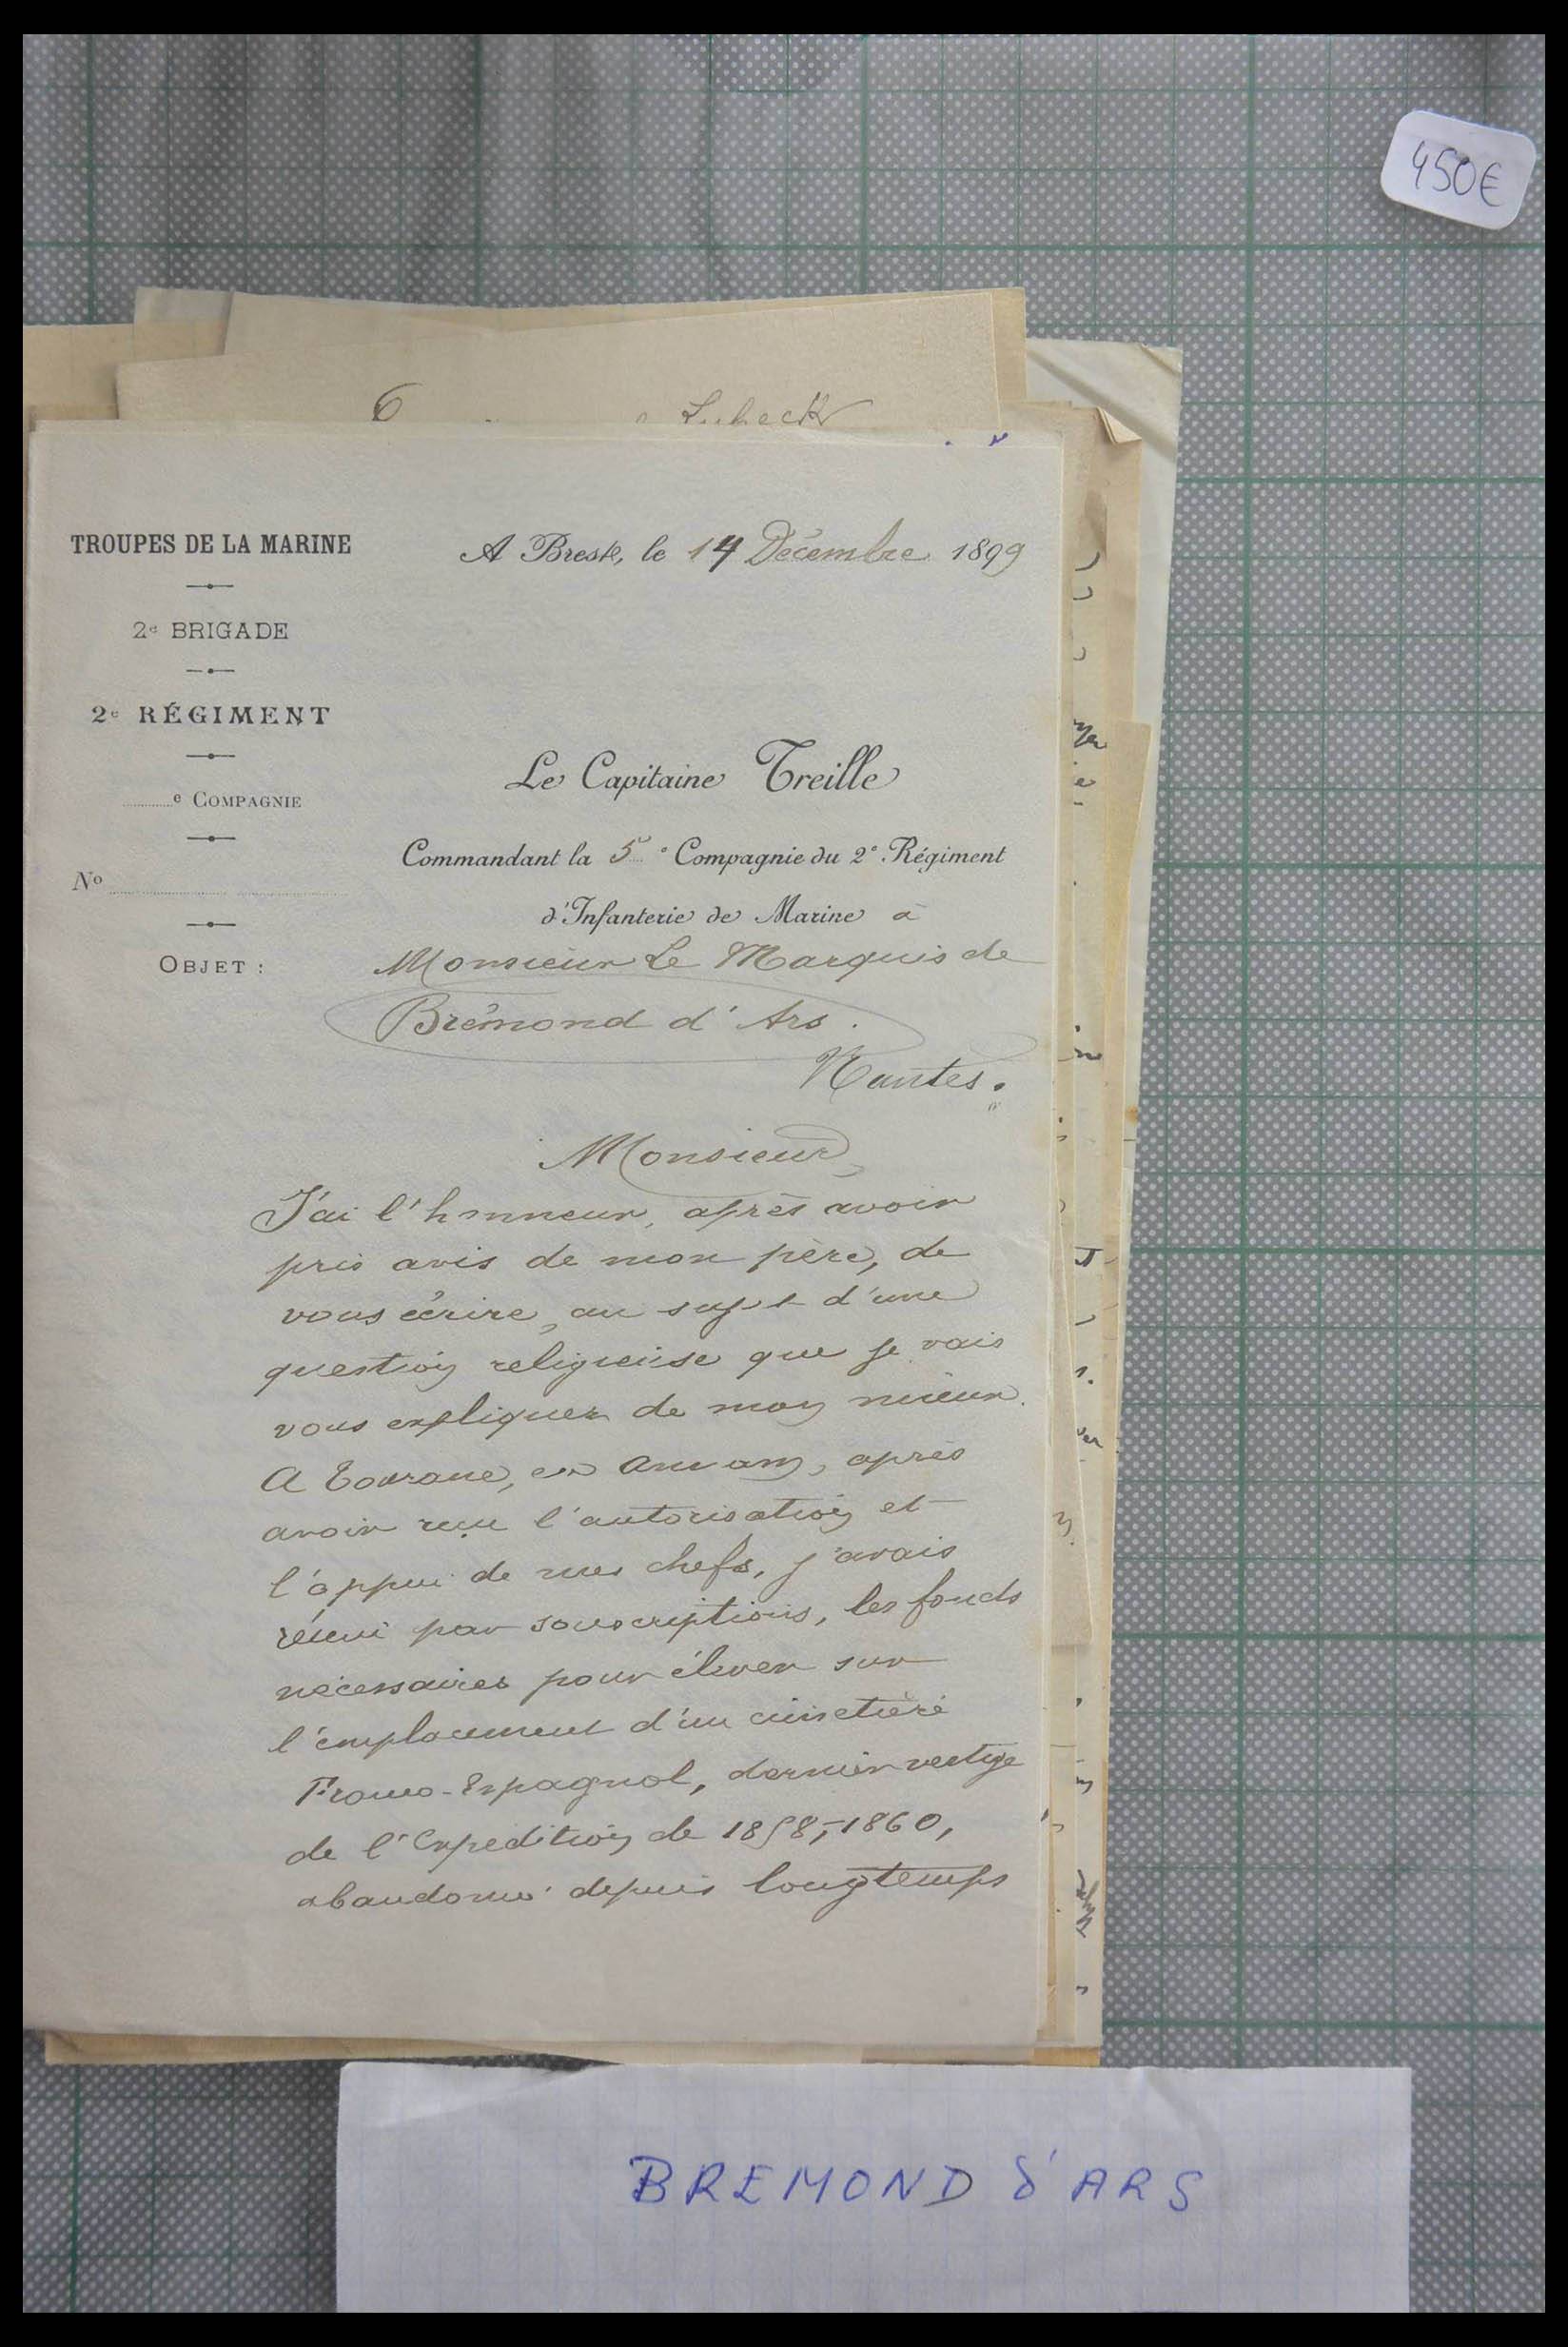 450€
6 Lubeck
TROUPES DE LA MARINE
2e BRIGADE
2e RÉGIMENT
e COMPAGNIE
No
OBJET :
A Brest, le 14 Décembre 1899
Le Capitaine Treille
Commandant la 5e Compagnie du 2e Régiment
d'Infanterie de Marine à
Monsieur Le Marquis de
Brémond d'Ars.
Nantes.
Monsieur,
J'ai l'honneur, après avoir
pris avis de mon père, de
vous écrire, au sujet d'une
question religieuse que je vais
vous expliquer de mon mieux.
A Tourane, en Annam, après
avoir reçu l'autorisation et
l'appui de mes chefs, j'avais
réuni par souscriptions, les fonds
nécessaires pour élever sur
l'emplacement d'un cimetière
Franco-Espagnol, dernier vestige
de l'Expédition de 1858-1860,
abandonné depuis longtemps
BREMOND d'ARS